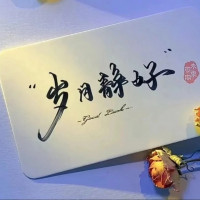 “岁月静好”
- Good Luck -